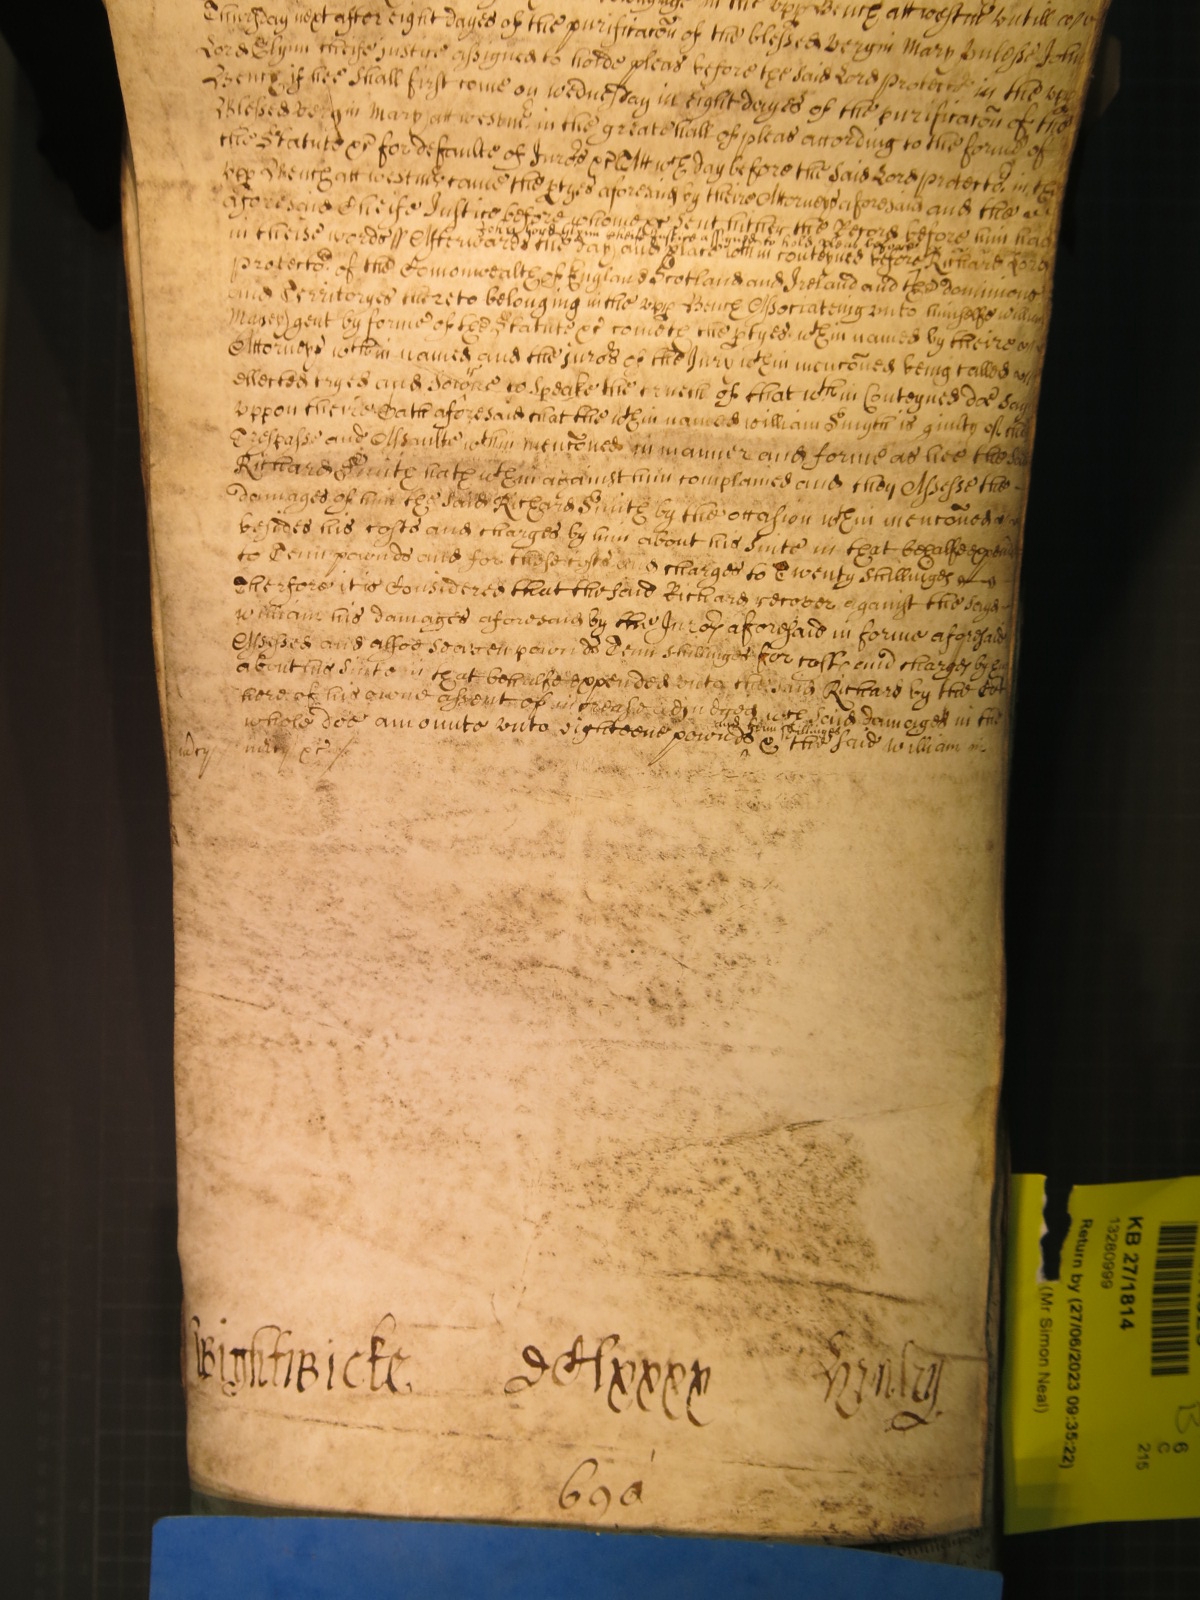 in the upp Bench att westm̃ untill
Thursday next after eight dayes of the purificacõn of the blessed Vergin Mary Unlesse John
Lord Glynn cheife justice assigned to holde pleas before the said Lord Protector in the upp
Bench if hee shall first come on wednesday in eight dayes of the purificacõn of the
Blessed Vergin Mary att westm̃ in the greate hall of pleas according to the forme of
the Statute &c for defaulte of Juro͛s &c Att wch day before the said Lord Protecto͛ in the
upp Bench att westm̃ came the ptyes aforesaid by theire Attorneys aforesaid and the
aforesaid Cheife Justice before whome &c sent hither the Record before him had
John Lord Glynn cheife Justice assigned to hold pleas before
in theise words ss Afterwards the day and place wthin conteyned before Richard Lord
Protecto͛ of the Comonwealth of England Scotland and Ireland and the dominions
and Territoryes thereto belonging in the upp Bench Associateing unto himselfe william
gent by forme of the Statute &c cometh the ptyes wthin named by theire
Attorneys wthin named and the juro͛s of the Jury wthin mencõned being called
ellected tryed and sworne to speake the trueth of that wthin Conteyned doe say
uppon theire Oath aforesaid that the wthin named william Smyth is guilty of the
Trespasse and Assaulte wthin mencõned in manner and forme as hee the said
Richard Smith hath wthin against him complained and they Assesse the
damages of him the said Richard Smith by the occasion wthin mencõned
besides his costs and charges by him about his suite in that behalfe expended
to Tenn pownds and for those costs and charges to Twenty shillinges
Therfore it is Considered that the said Richard recover against the said
william his damages aforesaid by the Jury aforesaid in forme aforesaid
Assessed and alsoe seaven pownds Tenn shillinges for costs and charges by him
about his suite in that behalfe expended unto the said Richard by the Cort
here of his owne assent of increase adjudged wch said damages in the
and tenn shillinges
whole doe amounte unto eighteene pownds & the said william in
mcy mercy &c
Wightwicke DClxxxx Henley
690
KB 27/1814
13280999
Return by (27/06/2023 09:35:22)
(Mr Simon Neal)
6
C
215